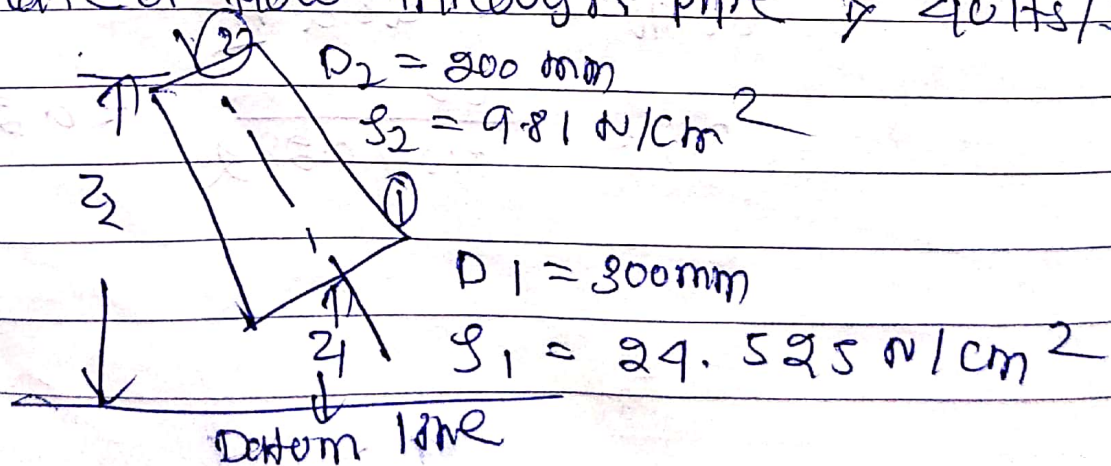 through pipe is 40 lts/
② D2 = 200 mm
P2 = 9.81 N/cm2
Z2
①
D1 = 300mm
Z1 P1 = 24.525 N/cm2
Datom line